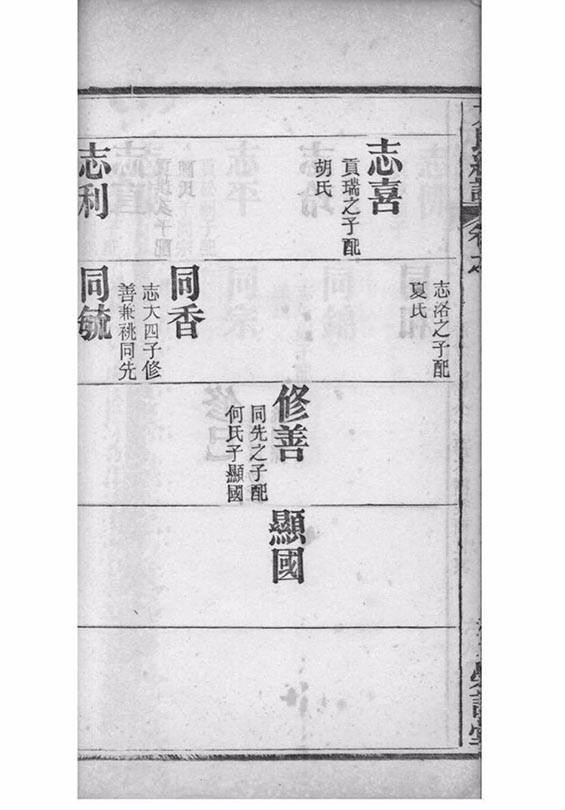 志喜
貢瑞之子配
胡氏
志利
志洛之子配
夏氏
同香
志大四子修
善兼祧同先
同毓
修善
同先之子配
何氏子顯國
顯國